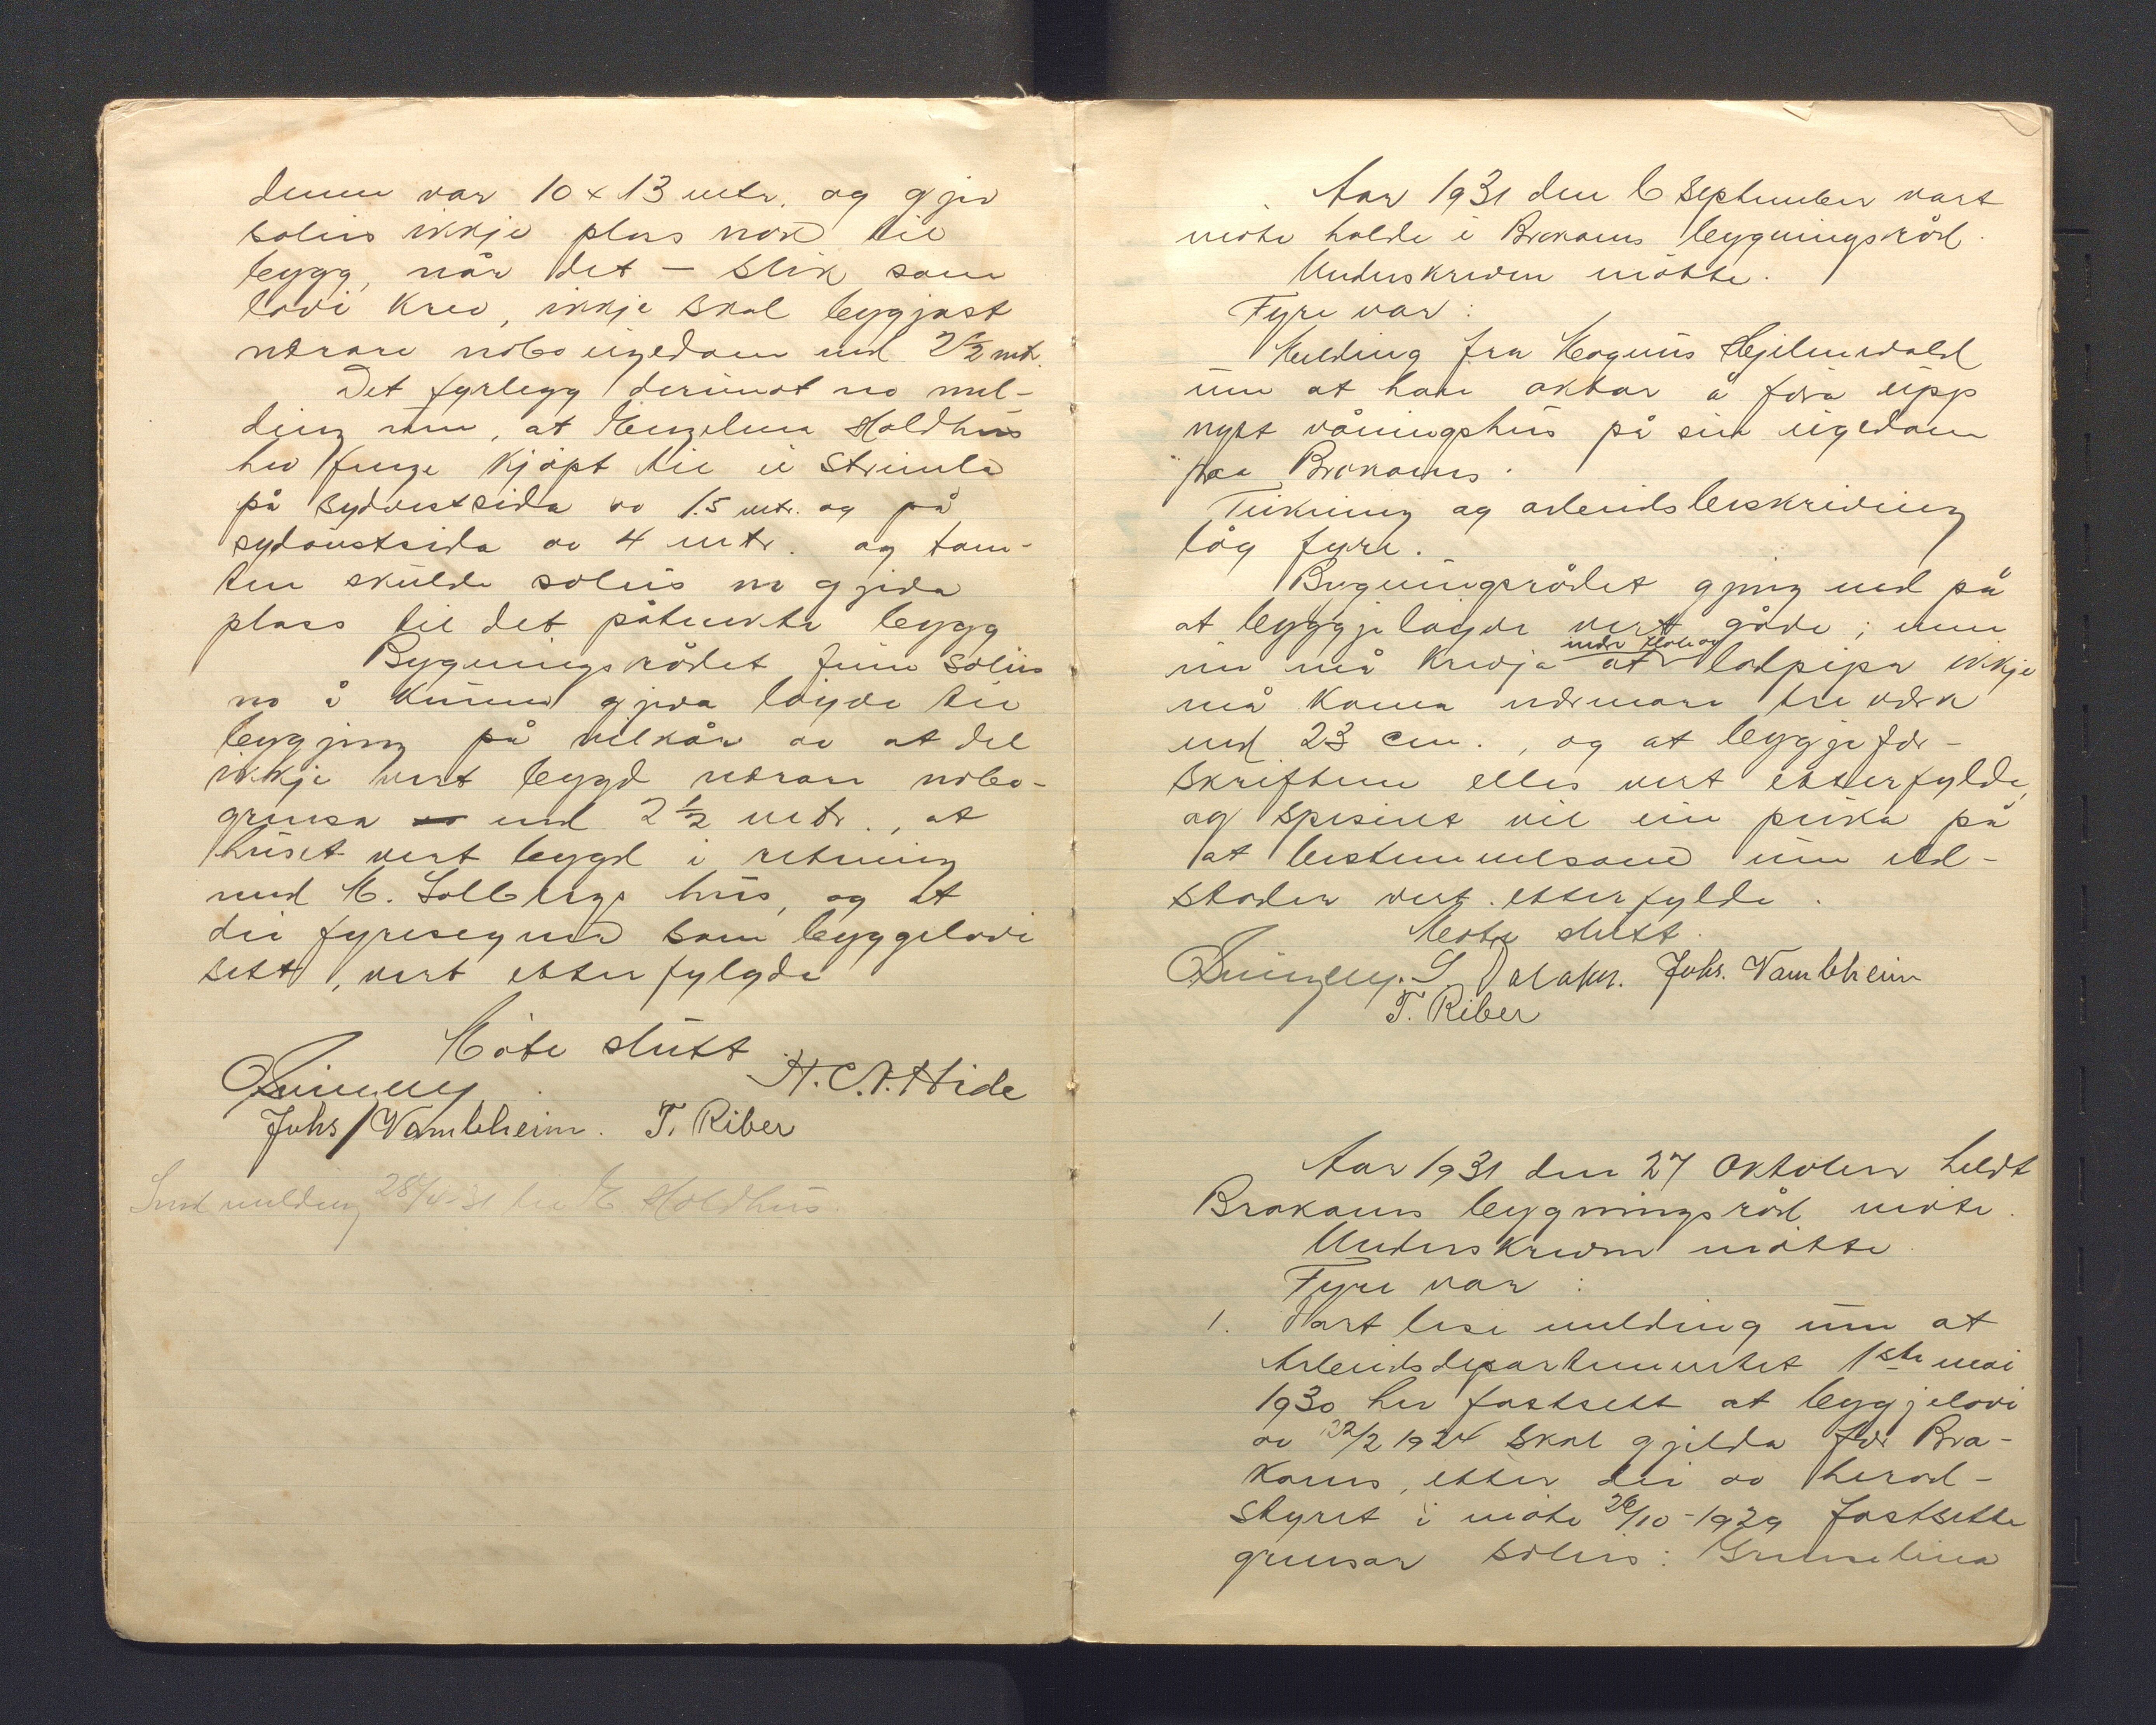 denne var 10 x 13 mtr. og gjev
soleis ikkje plass nok til
bygg, når det – slik som
lovi krev, ikkje skal byggjast
nærare naboeigedom enn 2½ mtr.
Det fyrelegg derimot no mel-
ding um, at Engelina Holdhus
hev fenge kjøpt til ei strimla
på sydvestsida av 1.5 mtr. og på
sydaustsida av 4 mtr. og tom-
ten skulde soleis no gjeva
plass til det påtenkte bygg
Bygningsrådet finn soleis
no å kunna gjeva løyve til
bygging på vilkår av at det
ikkje vert bygd nærare nabo-
grensa enn 2½ mtr., at
huset vert bygd i retning
med M. Solbergs hus, og at
dei fyresegner som byggelovi
sett, vert etterfylgde
Møte slutt
H. C. A. Hide
Johs Vambheim. T. Riber
Send melding 28/4-31 til E Holdhus.
Aar 1931 den 6 september vart
møte halde i Brakanes bygningsråd.
Underskrevne møtte.
Fyre var:
Melding fra Magnus Hjelmevold
um at han aktar å føra upp
nytt våningshus på sin eigedom
paa Brakanes.
Teikning og arbeidsbeskriving
låg fyre.
Bygningsrådet gjeng med på
at byggjeløyve vert gåve; men
ein må krevja at lodpipa ikkje
må koma nærmare treverk
enn 23 cm., og at byggjefor-
skriftene elles vert etterfylde,
og spesielt vil ein peika på
at bestemmelsane um eld-
stader vert etterfylde.
Møte slutt.
Johs. Vambheim
T. Riber
Aar 1931 den 27 Oktober heldt
Brakanes bygningsråd møte.
Underskrevne møtte
Fyre var:
1. Vart lese melding um at
Arbeidsdepartementet 1ste mai
1930 hev fastsett at byggjelovi
av 22/2 1924 skal gjelda for Bra-
kanes, etter dei av herad-
styret i møte 26/10-1929 fastsette
grensar soleis: Grenselina